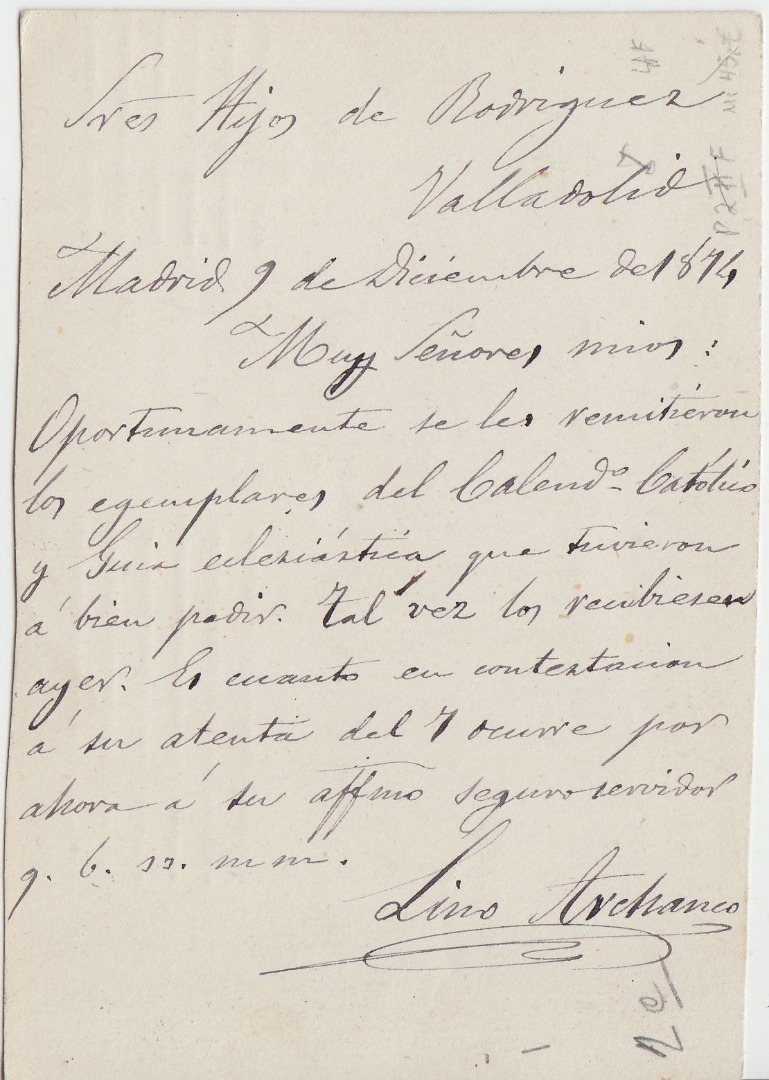 Sres Hijos de Rodriguez
Valladolid
Madrid 9 de Diciembre de 1874
Muy Señores mios:
Oportunamente se les remitieron
los egemplares del Calendº Católico
y Guia eclesiástica que tuvieron
á bien pedir. Tal vez los recibiesen
ayer. Es cuanto en contestacion
á su atenta del 7 ocurre por
ahora á su affmo seguro servidor
q. b. ss. mm.
Lino Archanco
2e